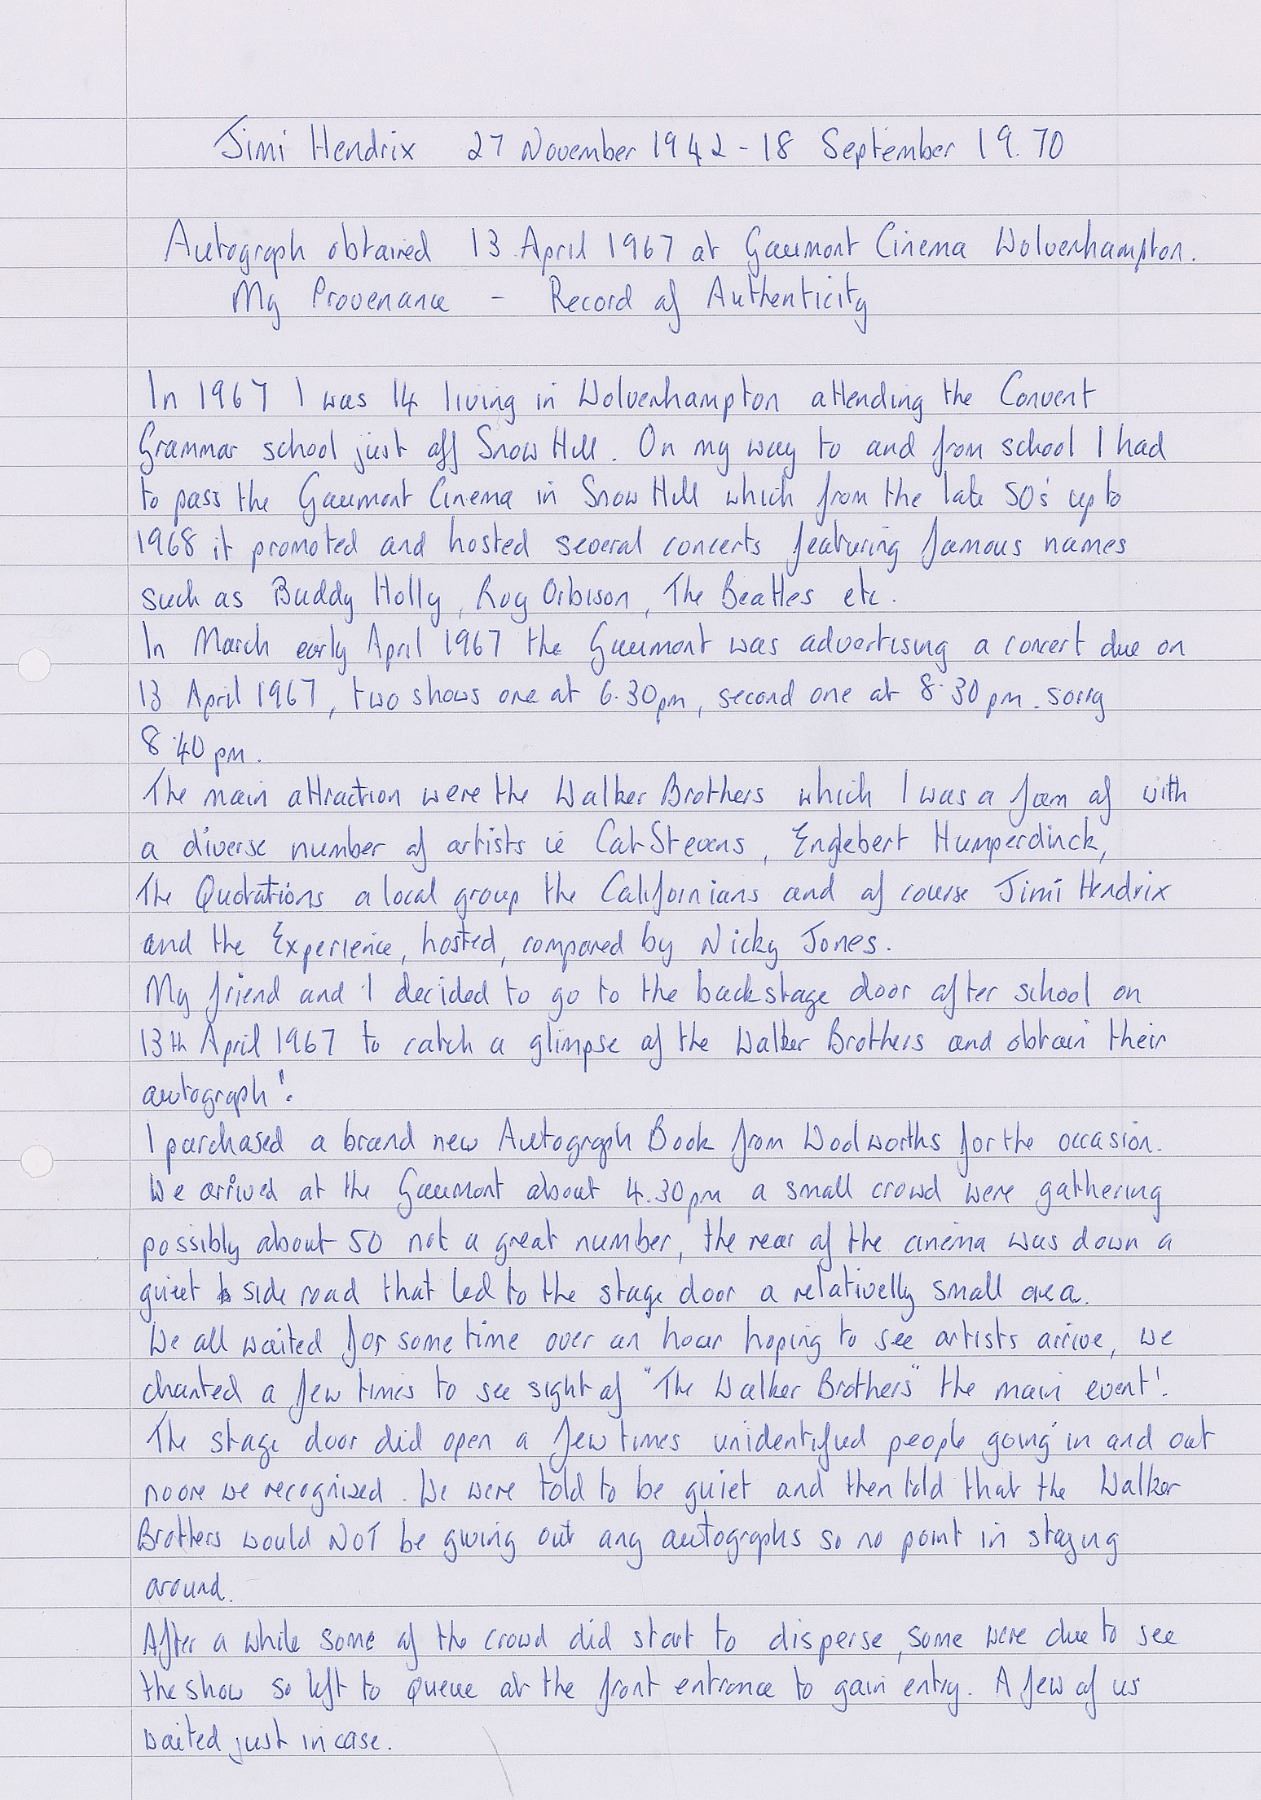 Jimi Hendrix 27 November 1942 - 18 September 19.70
Autograph obtained 13 April 1967 at Gaumont Cinema Wolverhampton.
My Provenance - Record of Authenticity
In 1967 I was 14 living in Wolverhampton attending the Convent
Grammar school just off Snow Hill. On my way to and from school I had
to pass the Gaumont Cinema in Snow Hill which from the late 50s' up to
1968 it promoted and hosted several concerts featuring famous names
such as Buddy Holly, Roy Orbison, The Beatles etc.
In March early April 1967 the Gaumont was advertising a concert due on
13 April 1967, two shows one at 6.30pm, second one at 8.30pm. sorry
8.40pm.
The main attraction were the Walker Brothers which I was a fan of with
a diverse number of artists ie Cat Stevens, Englebert Humperdinck,
The Quotations a local group the Californians and of course Jimi Hendrix
and the Experience, hosted, compared by Nicky Jones.
My friend and I decided to go to the backstage door after school on
13th April 1967 to catch a glimpse of the Walker Brothers and obtain their
autograph!
I purchased a brand new Autograph Book from Woolworths for the occasion.
We arrived at the Gaumont about 4.30pm a small crowd were gathering
possibly about 50 not a great number, the rear of the cinema was down a
quiet side road that led to the stage door a relativelly small area.
We all waited for some time over an hour hoping to see artists arrive, we
chanted a few times to see sight of "The Walker Brothers" the main event!
The stage door did open a few times unidentified people going in and out
noone we recognized. We were told to be quiet and then told that the Walker
Brothers would NOT be giving out any autographs so no point in staying
around.
After a while some of the crowd did start to disperse, some were due to see
the show so left to queue at the front entrance to gain entry. A few of us
waited just in case.